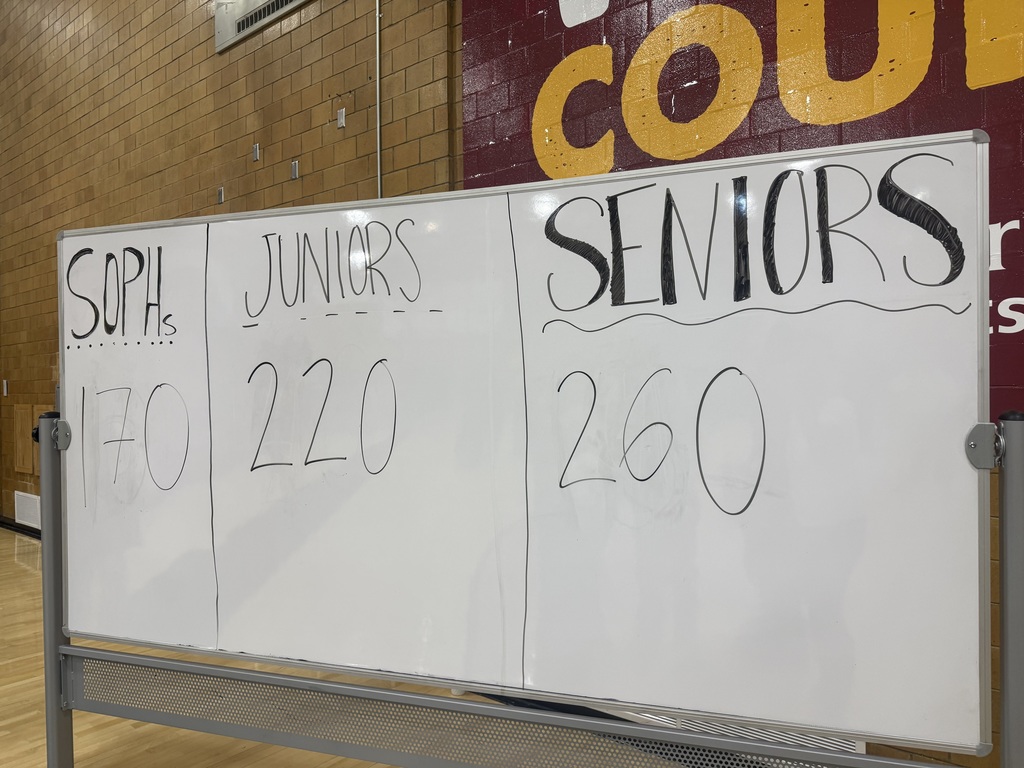 COU
SOPHs
JUNIORS
SENIORS
170
220
260